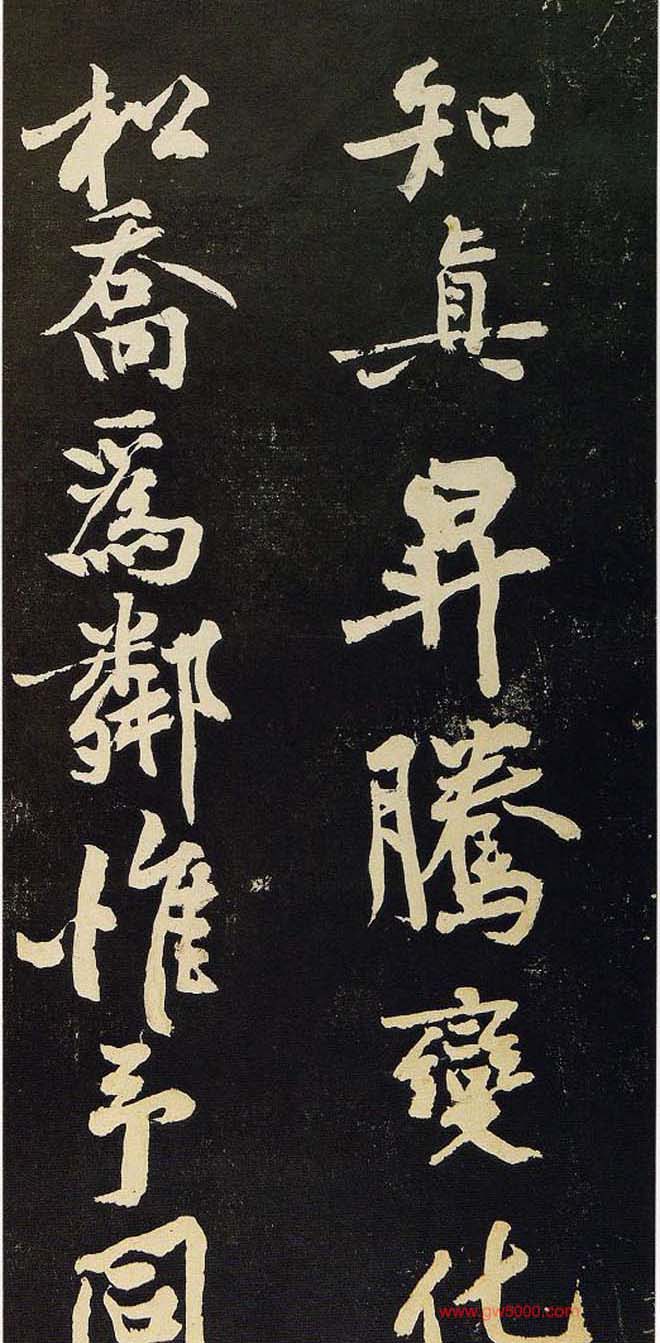 知真昇騰變化
松喬爲鄰惟予同
www.gw5000.com